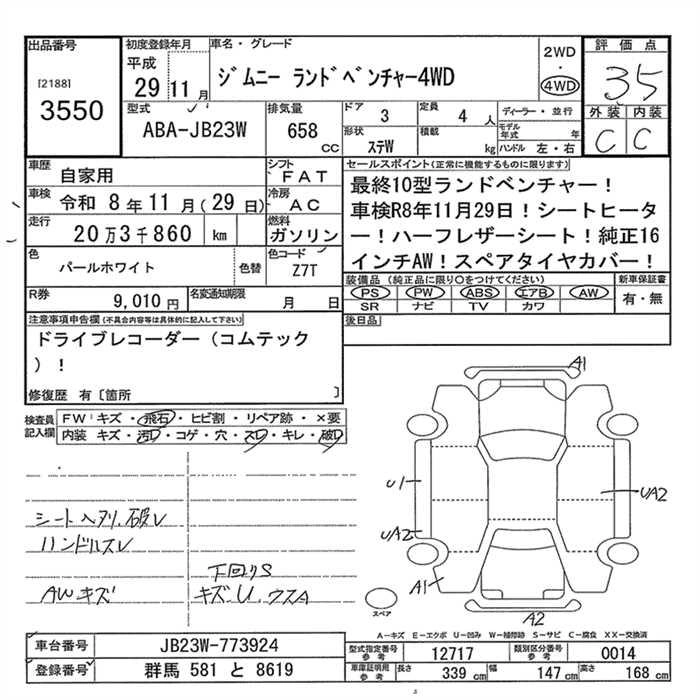 出品番号
[2188]
3550
初度登録年月
平成
29 11 月
車名・グレード
ジムニー ランドベンチャー4WD
2WD
・
4WD
評価点
3.5
外装 内装
C C
型式
ABA-JB23W
排気量
658 cc
ドア
3
定員
4 人
ディーラー・並行
形状
ステW
積載
kg
モデル年式 年
ハンドル 左・右
車歴
自家用
シフト
FAT
車検
令和 8 年 11 月 ( 29 日)
冷房
AC
走行
20 万 3 千 860 km
燃料
ガソリン
色
パールホワイト
色替
色コード
Z7T
R券
9,010 円
名変通知期限
月 日
セールスポイント(正常に機能するものに限ります)
最終10型ランドベンチャー!
車検R8年11月29日!シートヒータ
ー!ハーフレザーシート!純正16
インチAW!スペアタイヤカバー!
装備品(純正品に限り○をつけてください)
PS PW ABS エアB AW
SR ナビ TV カワ
新車保証書
有・無
後日品
注意事項申告欄(不具合内容等は具体的に記入して下さい)
ドライブレコーダー(コムテック
)!
修復歴 有〔箇所 〕
検査員
記入欄
FW:キズ・飛石・ヒビ割・リペア跡・×要
内装 キズ・汚レ・コゲ・穴・スレ・キレ・破レ
シート
ハンドルスレ
AWキズ
下回りS
キズ.U.ウスA
A1
U1
UA2
UA2
A1
A2
スペア
A-キズ E-エクボ U-凹み W-補修跡 S-サビ C-腐食 XX-交換済
車台番号
JB23W-773924
登録番号
群馬 581 と 8619
型式指定番号
参考
12717
類別区分番号
参考
0014
車庫証明用
参考
長さ
339 cm
幅
147 cm
高さ
168 cm